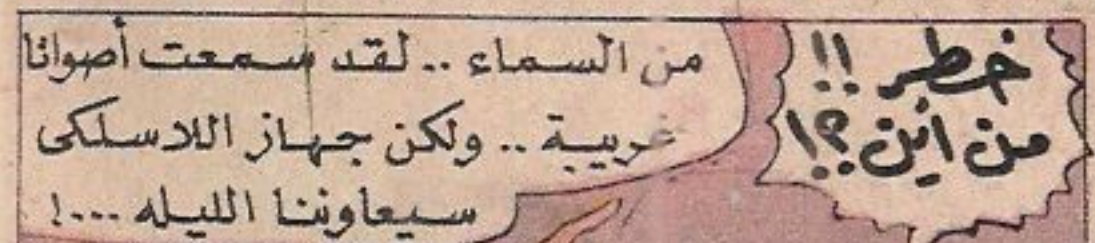 خطر !!
من أين ؟!
من السماء .. لقد سمعت أصواتا
غريبة .. ولكن جهاز اللاسلكى
سيعاوننا الليله ...!